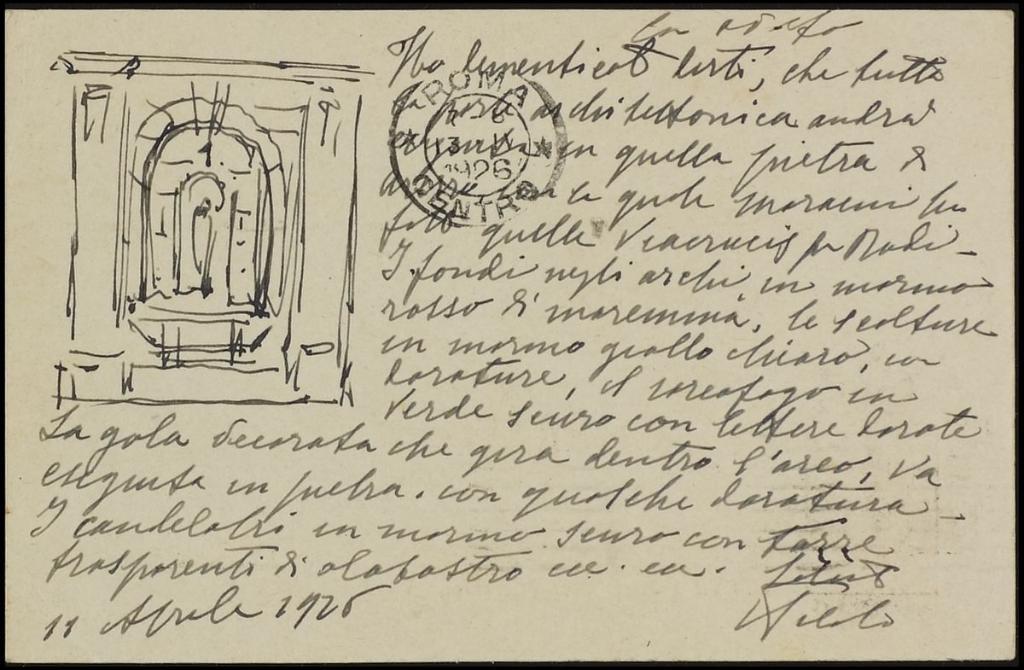 Caro Adolfo
Ho dimenticato dirti, che tutta
la parte architettonica andrà
eseguita in quella pietra di
la quale Maraini ha
fatto quelle Viacrucis per Rodi -
I fondi negli archi in marmo
rosso di maremma, le scolture
in marmo giallo chiaro, con
dorature, il sarcofago in
verde scuro con lettere dorate
La gola decorata che gira dentro l'arco, va
eseguita in pietra. con qualche doratura -
I candelabri in marmo scuro con tazze
trasparenti di alabastro ecc. ecc. Saluti
11 Aprile 1926
ROMA
13 IV
1926
CENTRO